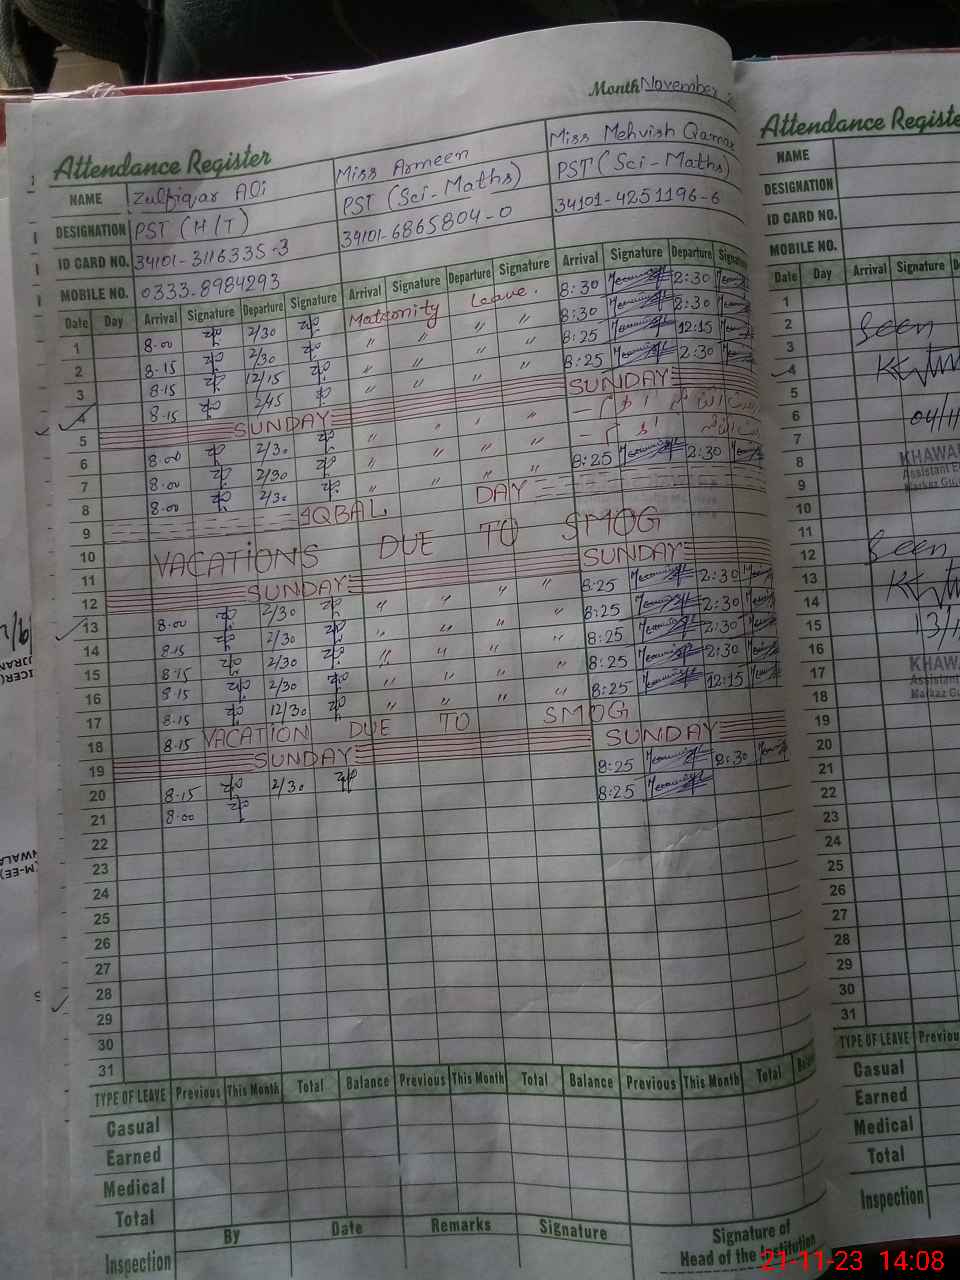 Month November
Attendance Register
NAME Zulfiqar Ali Miss Armeen Miss Mehvish Qamar
DESIGNATION PST (H/T) PST (Sci-Maths) PST (Sci-Maths)
ID CARD NO. 34101-3116335-3 34101-6865804-0 34101-4251196-6
MOBILE NO. 0333-8984293
Date Day Arrival Signature Departure Signature Arrival Signature Departure Signature Arrival Signature Departure
1 8.00 2/30 Maternity Leave. 8:30 2:30
2 8.15 2/30 " " " 8:30 2:30
3 8.15 12/15 " " " " 8:25 12:15
4 8.15 2/45 " " " " 8:25 2:30
5 SUNDAY SUNDAY
6 8.00 2/30 " " " "
7 8.00 2/30 " " " "
8 8.00 2/30 " " " " 8:25 2:30
9 IQBAL DAY
10 VACATIONS DUE TO SMOG
11
12 SUNDAY SUNDAY
13 8.00 2/30 " " " " 8:25 2:30
14 8.15 2/30 " " " " 8:25 2:30
15 8.15 2/30 " " " " 8:25 2:30
16 8.15 2/30 " " " " 8:25 2:30
17 8.15 12/30 " " " " 8:25 12:15
18 8.15 VACATION DUE TO SMOG
19 SUNDAY SUNDAY
20 8.15 2/30 8:25 2:30
21 8.00 8:25
22
23
24
25
26
27
28
29
30
31
TYPE OF LEAVE Previous This Month Total Balance Previous This Month Total Balance Previous This Month Total
Casual
Earned
Medical
Total
Inspection By Date Remarks Signature Signature of
Head of the Institution
Attendance
NAME
DESIGNATION
ID CARD NO.
MOBILE NO.
Date Day Arrival Signature
1
2 Seen
3
4
5
6 04/11
7
8 KHAWA
9 Assistant
Markaz
10
11
12 Seen
13
14
15 13/
16
17 KHAWA
18 Markaz
19
20
21
22
23
24
25
26
27
28
29
30
31
TYPE OF LEAVE
Casual
Earned
Medical
Total
Inspection
21-11-23 14:08